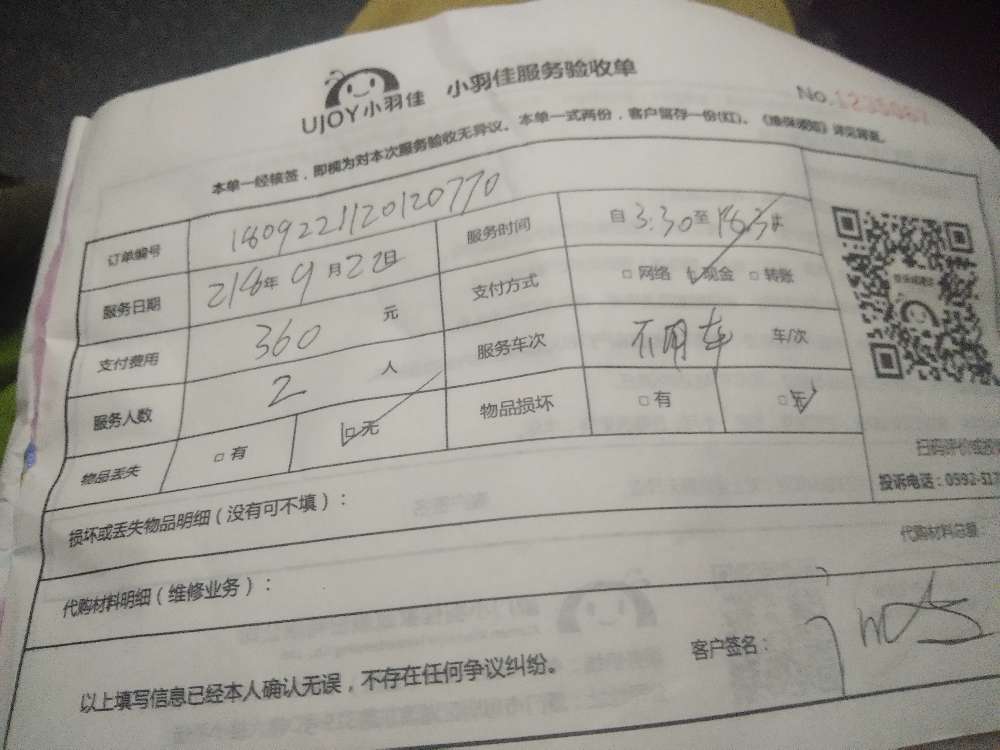 UJOY小羽佳 小羽佳服务验收单
No.
本单一经核签，即视为对本次服务验收无异议。本单一式两份，客户留存一份(红)。《维保须知》详见背面。
订单编号 1809221120120770 服务时间 自 3:30 至
服务日期 218年 9月22日 支付方式 □网络 □现金 □转账
支付费用 360 元 服务车次 不用车 车/次
服务人数 2 人 物品损坏 □有 □无
物品丢失 □有 □无
扫码评价或投
投诉电话：0592-517
损坏或丢失物品明细（没有可不填）：
代购材料明细（维修业务）： 代购材料总额
以上填写信息已经本人确认无误，不存在任何争议纠纷。 客户签名：